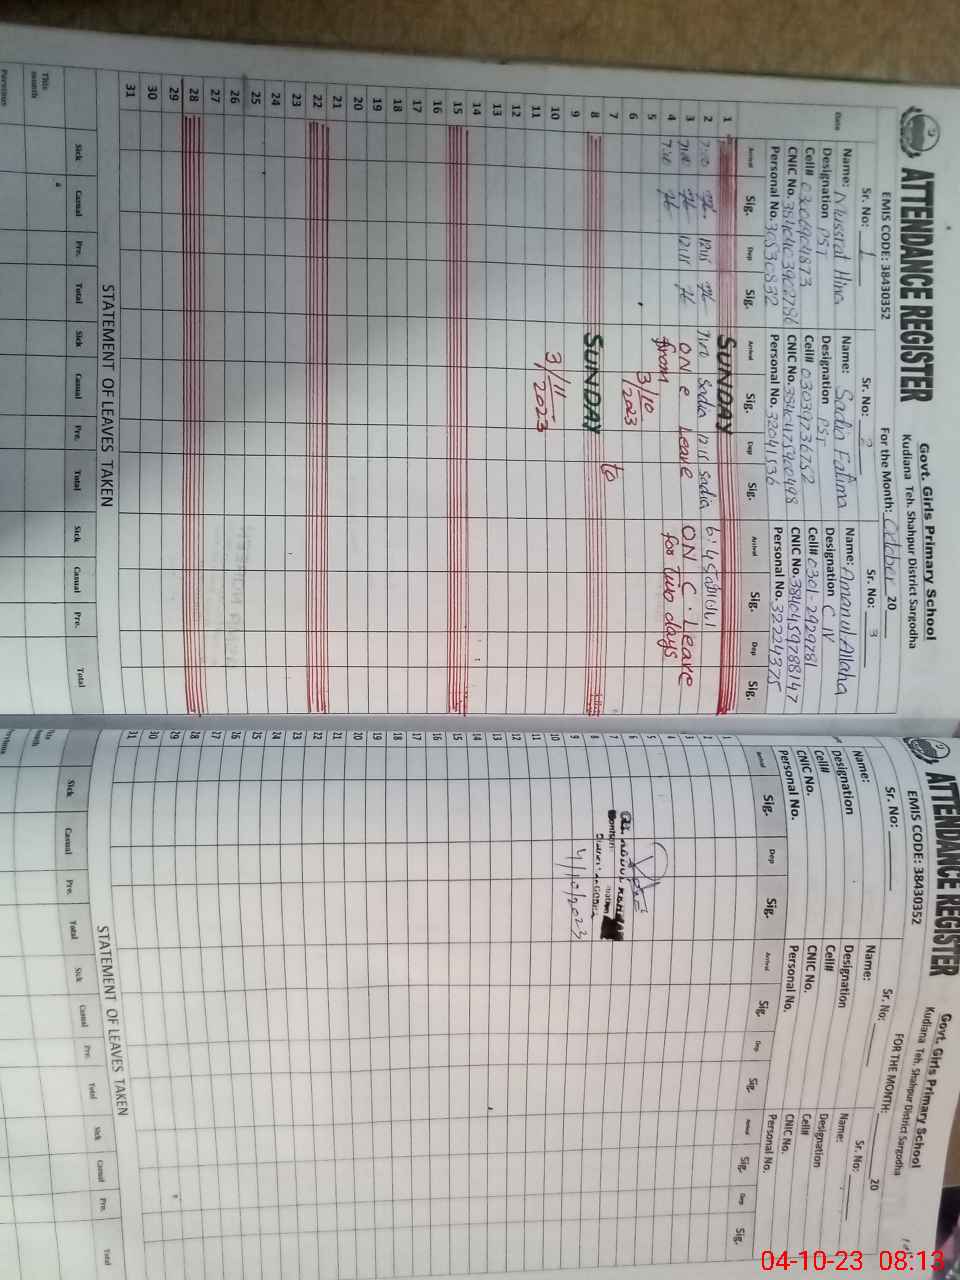 ATTENDANCE REGISTER
Govt. Girls Primary School
Kudiana Teh. Shahpur District Sargodha
EMIS CODE: 38430352
For the Month: October 20
Sr. No: 1
Name: Mussrat Hina
Designation PST
Cell# 03006904873
Personal No. 30530832
Sr. No: 2
Name: Sadia Fatima
Designation PST
Cell# 03039736752
Personal No. 32041536
Sr. No: 3
Name: Amanul Allaha
Designation C IV
Cell# 0301-2929781
CNIC No. 3840459788147
Personal No. 32224375
Date Arrival Sig. Dep Sig. Arrival Sig. Dep Sig. Arrival Sig. Dep Sig.
1 SUNDAY
2 7:00 12:15 Sadia 12:15 Sadia 6:45
3 12:15 ON e Leave ON C. Leave
4 7:00 from for two days
5 3/10
6 2023
7 to
8 SUNDAY
9
10 3/11
11 2023
12
13
14
15
16
17
18
19
20
21
22
23
24
25
26
27
28
29
30
31
STATEMENT OF LEAVES TAKEN
Sick Casual Pre. Total Sick Casual Pre. Total Sick Casual Pre. Total
This month
Previous
ATTENDANCE REGISTER
Govt. Girls Primary School
Kudiana Teh. Shahpur District Sargodha
EMIS CODE: 38430352
FOR THE MONTH: 20
Sr. No: Sr. No: Sr. No:
Name: Name: Name:
Designation Designation Designation
Cell# Cell# Cell#
CNIC No. CNIC No. CNIC No.
Personal No. Personal No. Personal No.
Arrival Sig. Dep Sig. Arrival Sig. Dep Sig. Arrival Sig. Dep Sig.
1
2
3
4
5
6
7
8
9 4/10/2023
10
11
12
13
14
15
16
17
18
19
20
21
22
23
24
25
26
27
28
29
30
31
STATEMENT OF LEAVES TAKEN
Sick Casual Pre. Total Sick Casual Pre. Total Sick Casual Pre. Total
04-10-23 08:13